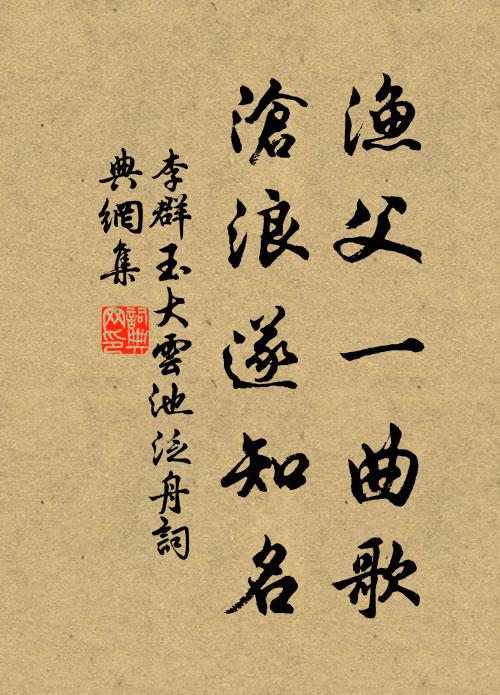 漁父一曲歌
滄浪遂知名
李群玉大雲池泛舟詞
典網集
詞典
网印